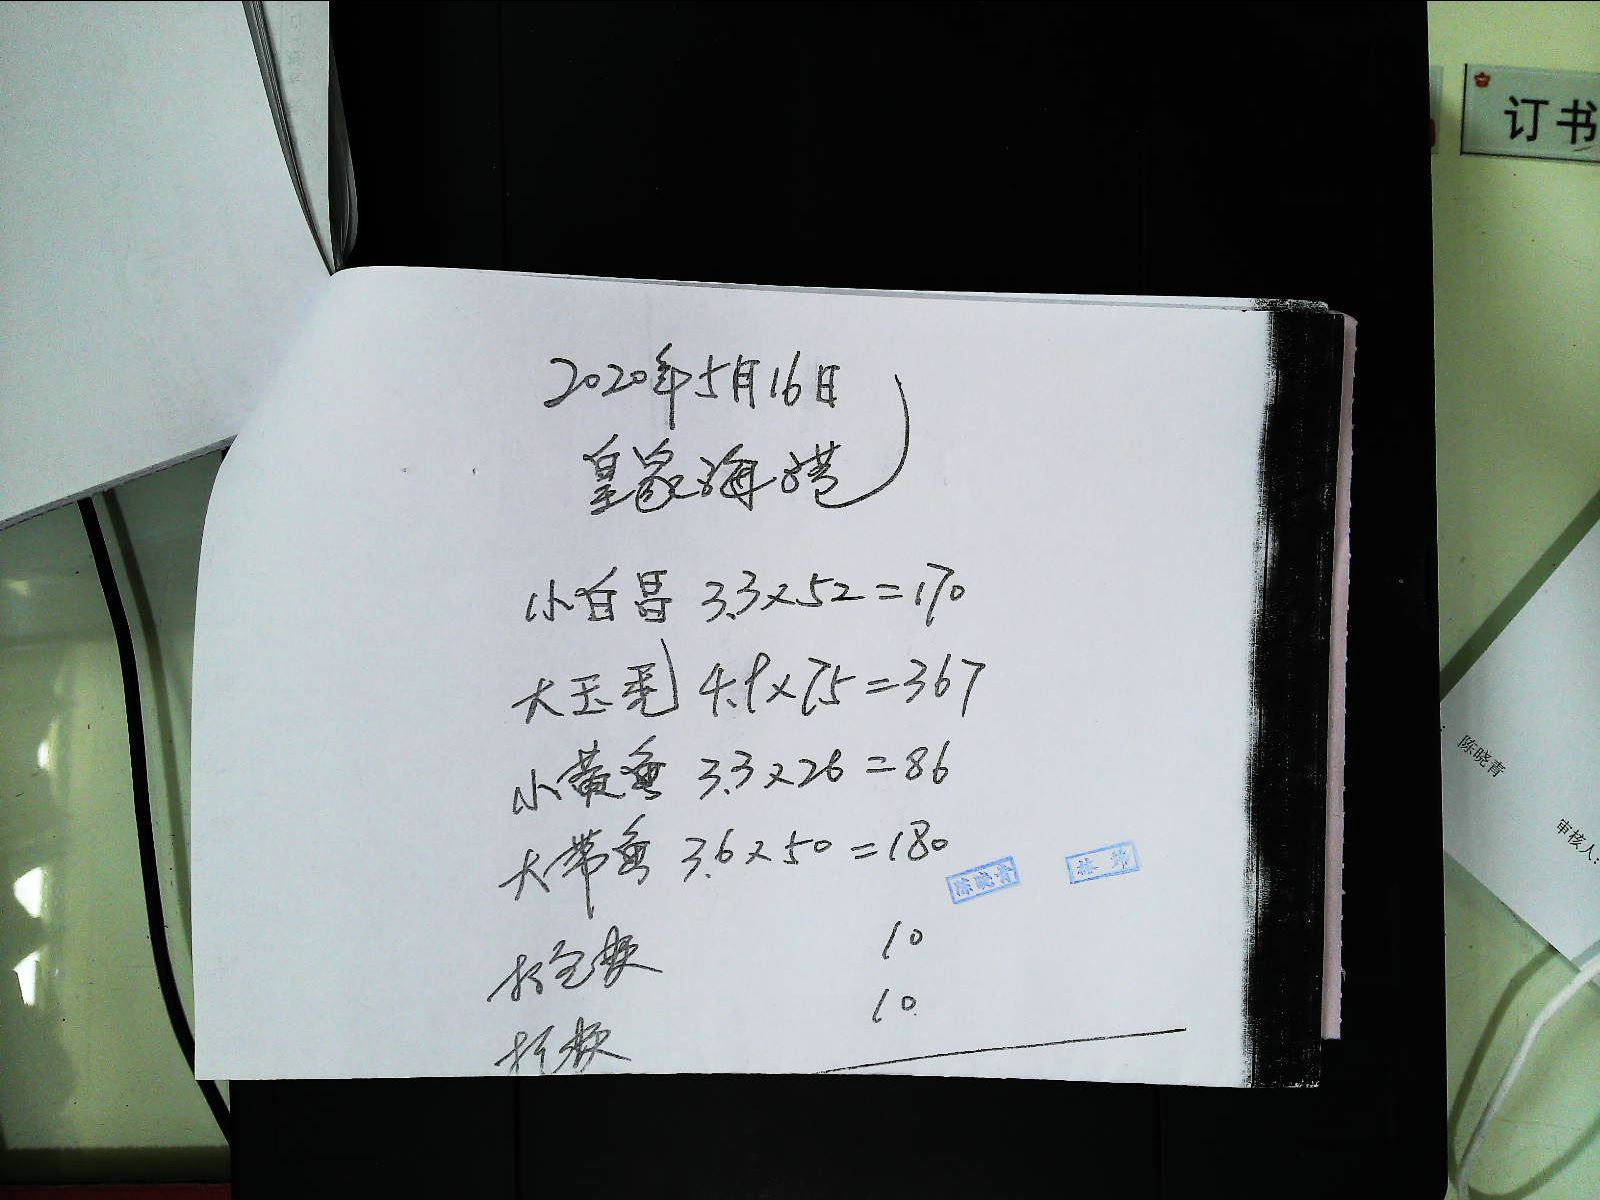 订书
2020年5月16日
皇家海港
小白昌 3.3×52=170
大玉 4.9×75=367
小黄鱼 3.3×26=86
大带鱼 3.6×50=180
陈晓青
林
10
10
陈晓青
审核人: